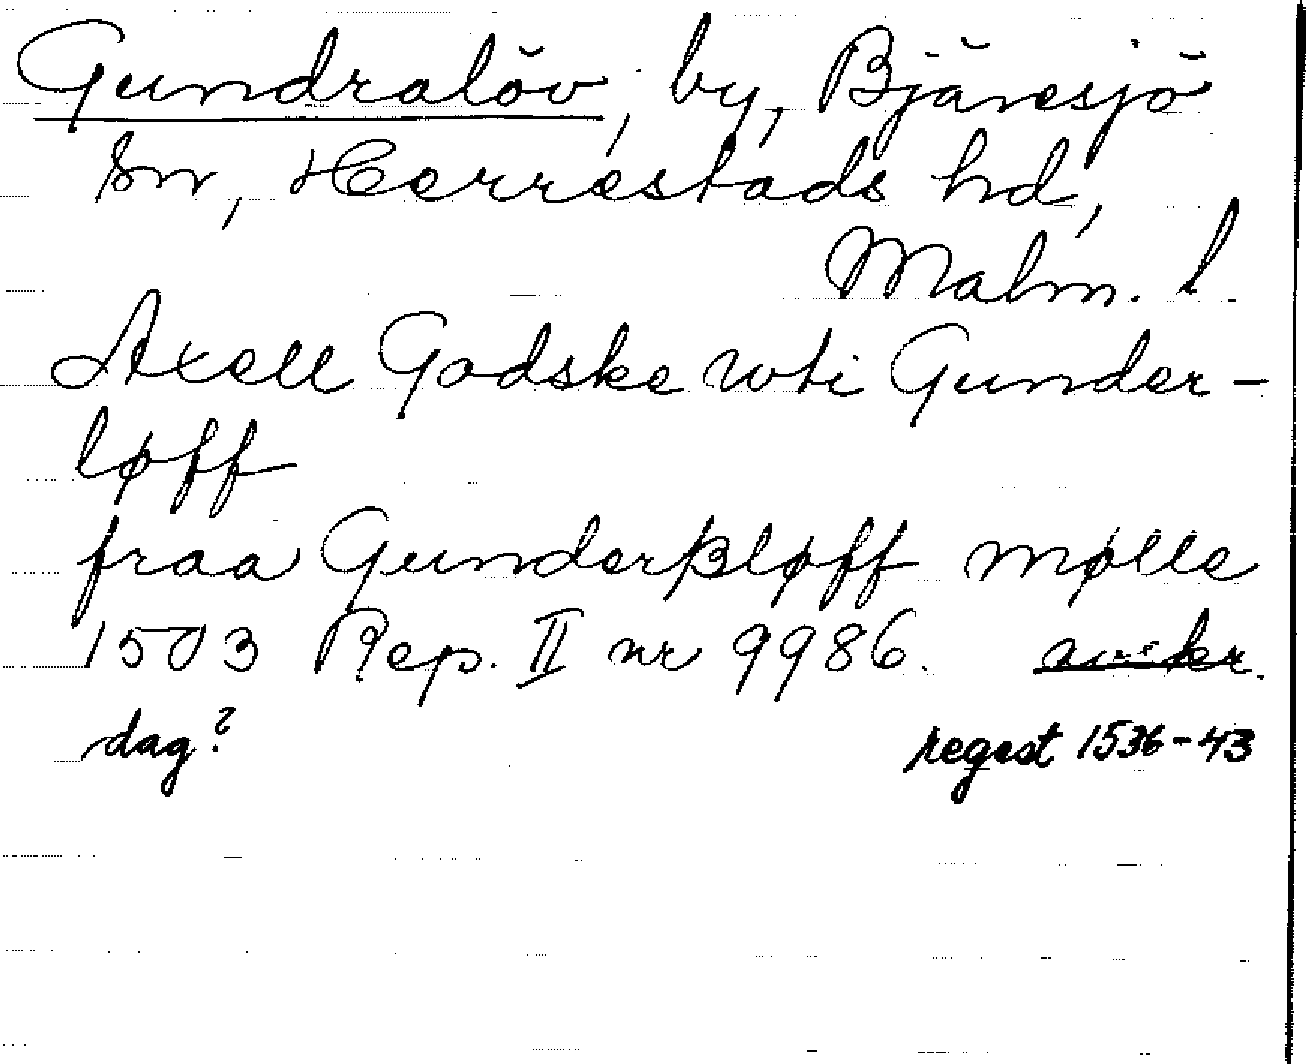 Gundralöv, by, Bjäresjö
sn, Herrestads hd,
Malm. l.
Axell Godske wti Gunder-
løff
fraa Gunderßløff mølle
1503 Rep. II nr 9986.
dag? regest 1536-43